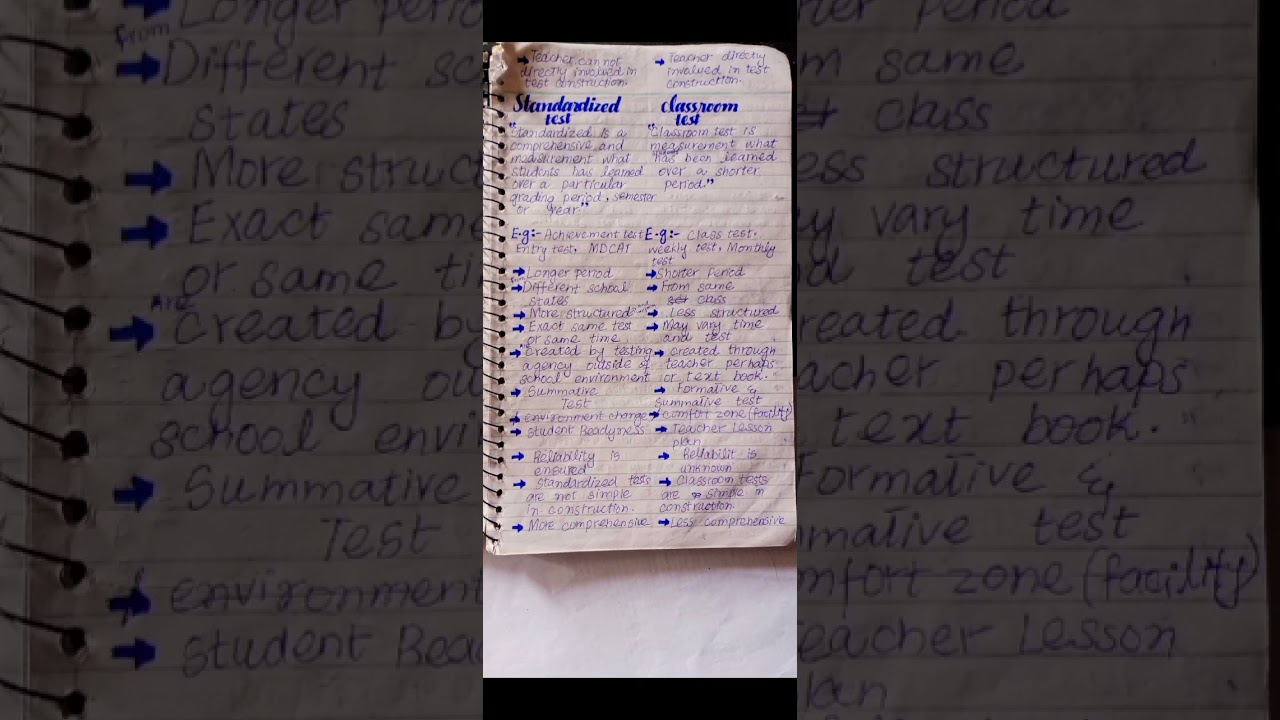 Teacher cannot
directly involved in
test construction.
Teacher directly
involved in test
construction.
Standardized
test
"Standardized is a
comprehensive and
measurement what
students has learned
over a particular
grading period, semester
or year."
Classroom
test
"Classroom test is
measurement what
has been learned
over a shorter
period."
E.g:- Achievement test
Entry test, MDCAT
E.g:- Class test,
weekly test, Monthly
test
Longer period
from
Different school
states
More structured
Exact same test
or same time
Are
Created by testing
agency outside of
school environment
Summative
Test
environment change
Student Readyness
Reliability is
ensured
Standardized tests
are not simple
in construction.
More comprehensive
Shorter Period
From same
class
Less structured
May vary time
and test
created through
teacher perhaps
or text book.
Formative &
Summative test
comfort zone (facility)
Teacher Lesson
plan
Reliabilit is
unknown
Classroom tests
are simple in
construction.
Less comprehensive